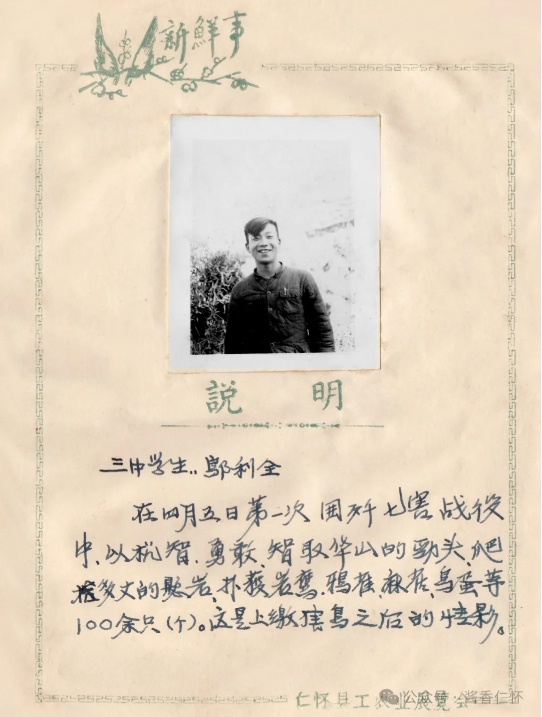 新鮮事
説明
三中学生：鄔利全
在四月五日第一次围歼七害战役
中，以机智、勇敢、智取华山的勁头，爬
多丈的悬岩，扑获岩鹰、鴉雀、麻雀、鸟蛋等
100余只(个)。这是上缴害鸟之后的情影。
仁怀县工农业展览会
公众号·酱香仁怀